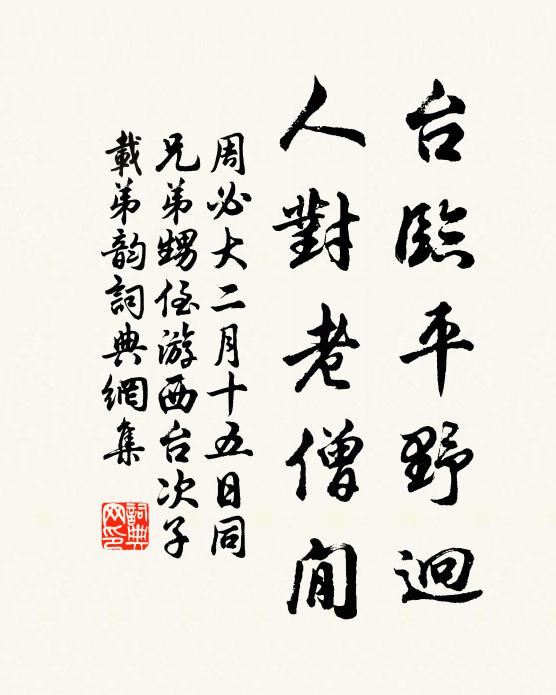 台臨平野迥
人對老僧閒
周必大二月十五日同
兄弟甥侄游西台次子
載弟韵詞典網集
詞典
网印